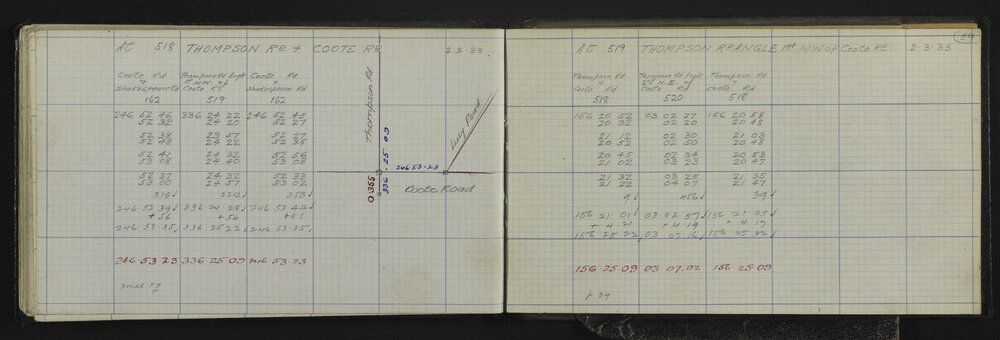 At 518 THOMPSON RD & COOTE RD 2.3.33
Coote Rd Thompson Rd Angle Coote Rd
& 1st N.W. of &
Shakespeare Rd Coote Rd Shakespeare Rd
162 519 162
246 52 46 336 24 22 246 52 45
52 32 24 20 52 27
52 38 23 57 52 27
52 48 24 22 52 35
52 41 24 32 52 56
53 08 24 40 53 08
52 37 24 32 52 33
53 00 24 57 53 02
310 222 353
246 52 39 336 24 28 246 52 44
+ 56 + 54 + 51
246.53.35 336.25.22 246.53.35
246.53 23 336.25 09 246.53.23
Thompson Rd
Lucy Road
336.25.09
0.355
246.53.23
Coote Road
59
At 519 THOMPSON RD ANGLE 1st N.W of Coote RD 2.3.33
Thompson Rd Thompson Rd Angle Thompson Rd
& 2nd N.E. of &
Coote Rd Coote Rd Coote Rd
518 520 518
156 20 52 03 02 27 156 20 58
20 32 02 20 20 48
21 12 02 30 21 03
20 52 02 50 20 48
20 45 02 34 20 53
21 02 03 23 20 47
21 32 03 25 21 35
21 22 04 07 21 47
9 456 39
156 21 01 03 02 57 156 21 05
+ 4 21 + 4 19 + 4 17
156.25 22 03.07 16 156 25 22
156.25.09 03.07.02 156.25.09